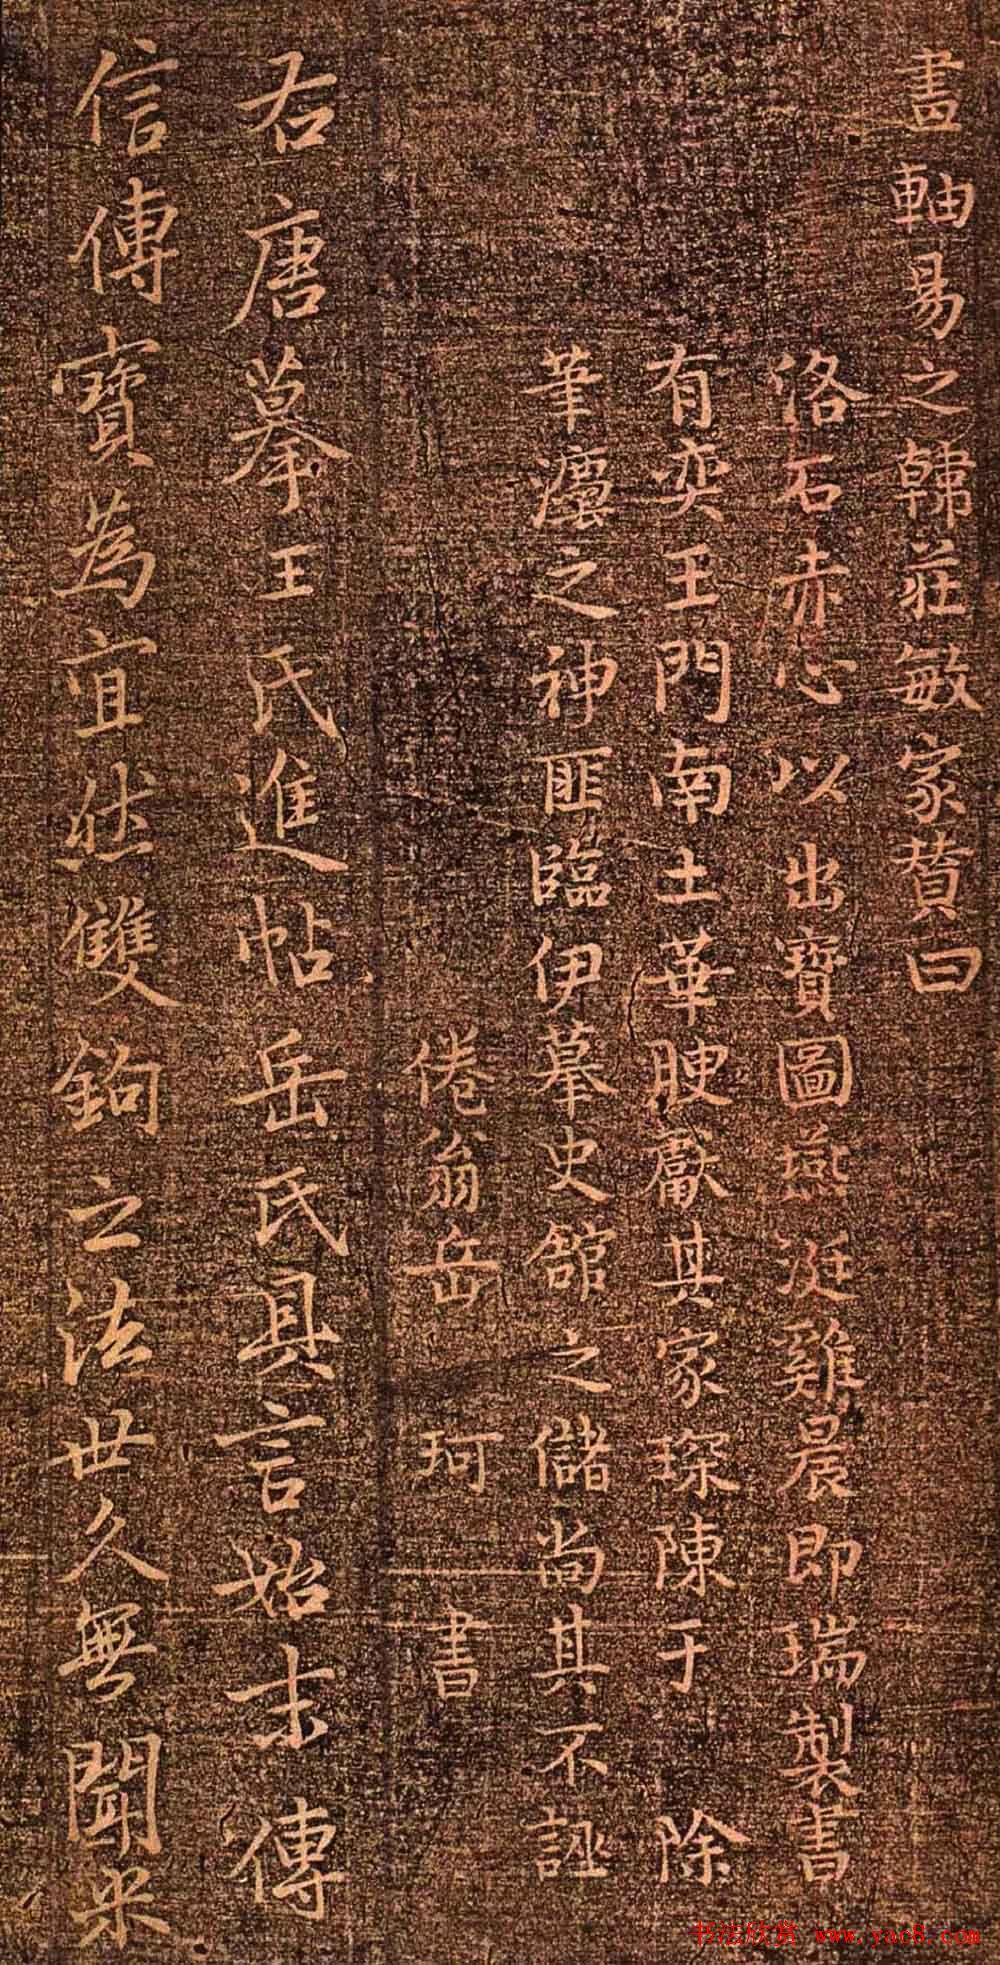 畫軸易之韓莊敏家贊曰
洛石赤心以出寶圖燕涎雞晨即瑞製書
有奕王門南土華腴獻其家琛陳于除
筆灋之神匪臨伊摹史館之儲尚其不誣
倦翁岳珂書
右唐摹王氏進帖岳氏具言始末傳
信傳寶為宜然雙鉤之法世久無聞米
书法欣赏 www.yac8.com